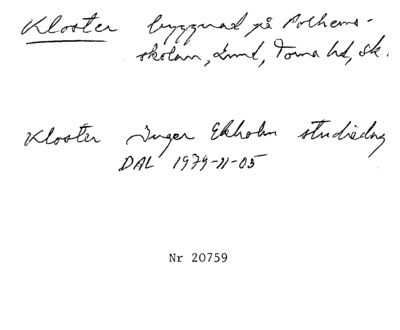 Kloster byggnad på Polhems-
skolan, Lund, Torna hd, Sk.
Kloster Inger Ekholm studiedag
DAL 1979-11-05
Nr 20759